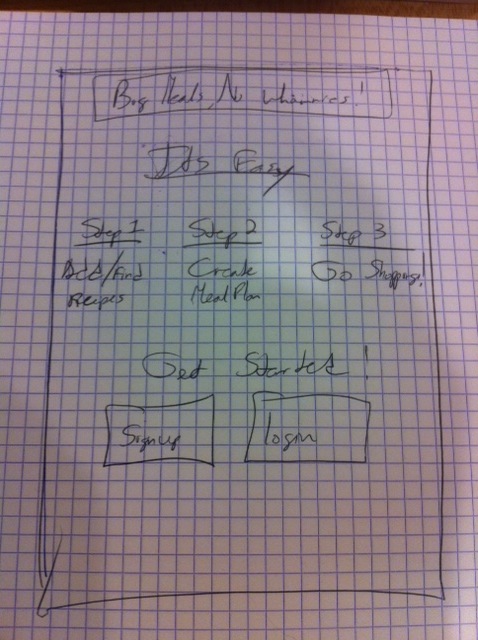 Big Meals, No Whammies!
Its Easy
Step 1
Add/Find
Recipes
Step 2
Create
Meal Plan
Step 3
Go Shopping!
Get Started!
Signup
login